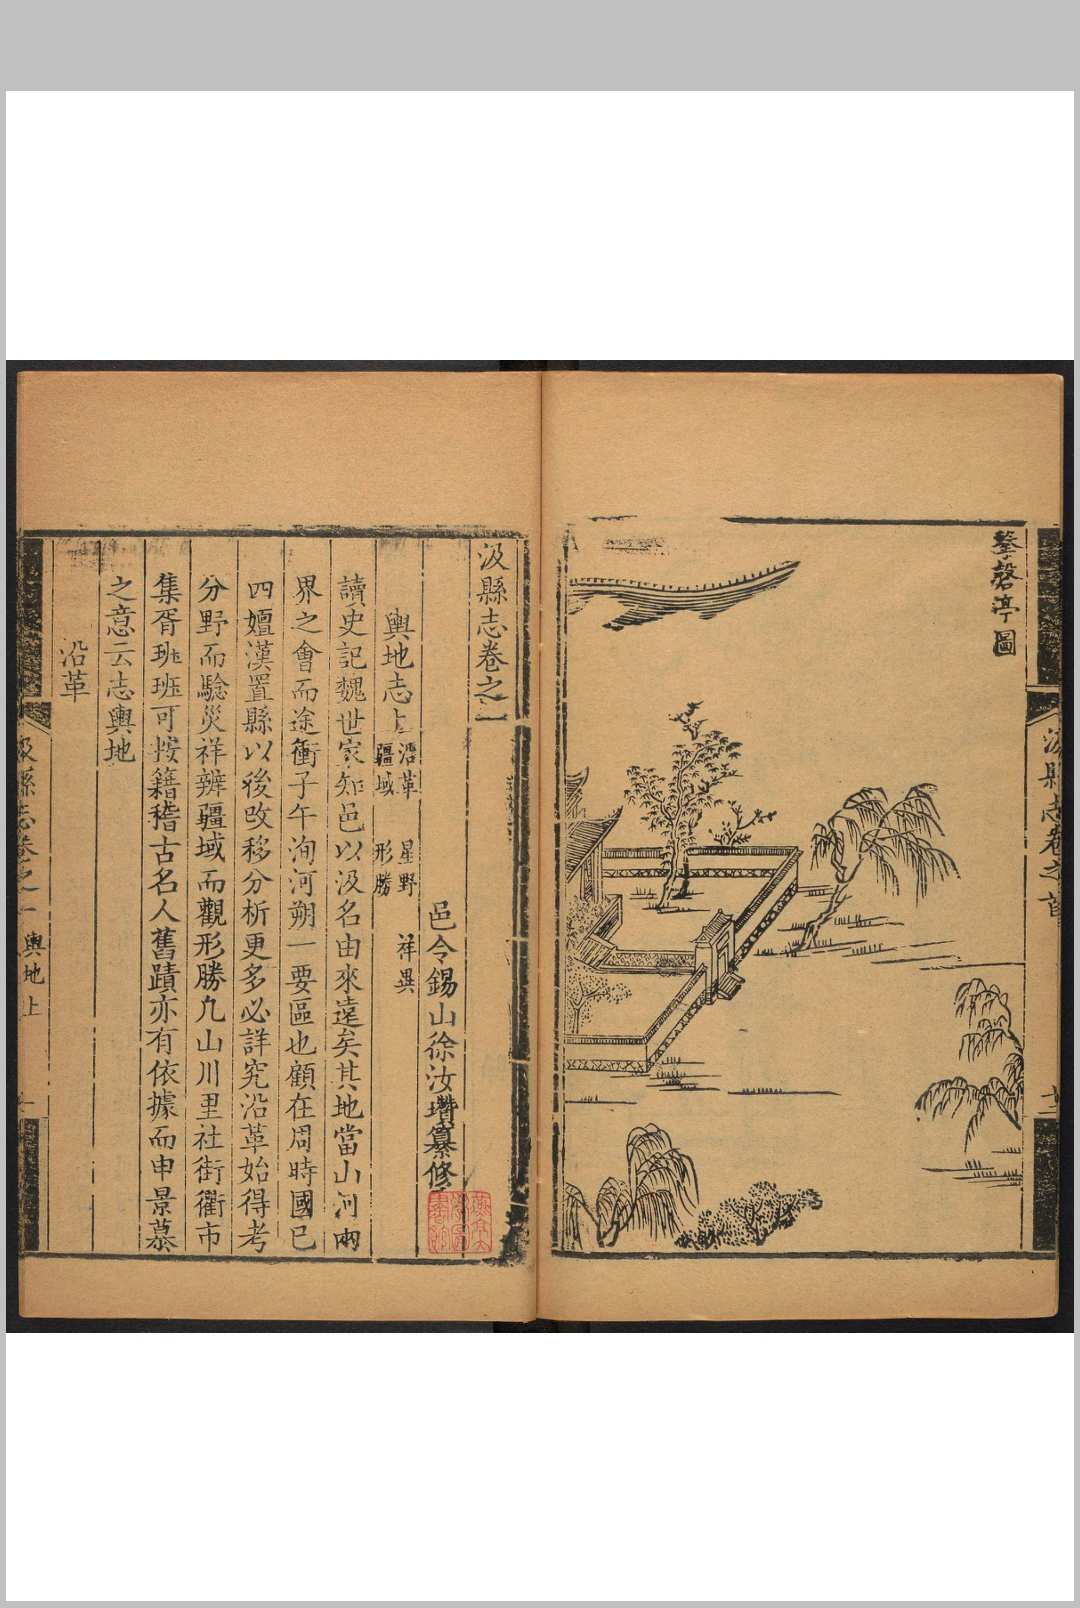 擊磬亭圖
汲縣志卷之首
汲縣志卷之一
邑令錫山徐汝瓚纂修
輿地志上 沿革 疆域 星野 形勝 祥異
讀史記魏世家知邑以汲名由來遠矣其地當山河兩
界之會而途衝子午洵河朔一要區也顧在周時國已
四嬗漢置縣以後改移分析更多必詳究沿革始得考
分野而驗災祥辨疆域而觀形勝凢山川里社街衢市
集胥班班可按籍稽古名人舊蹟亦有依據而申景慕
之意云志輿地
沿革
汲縣志卷之一 輿地上 一